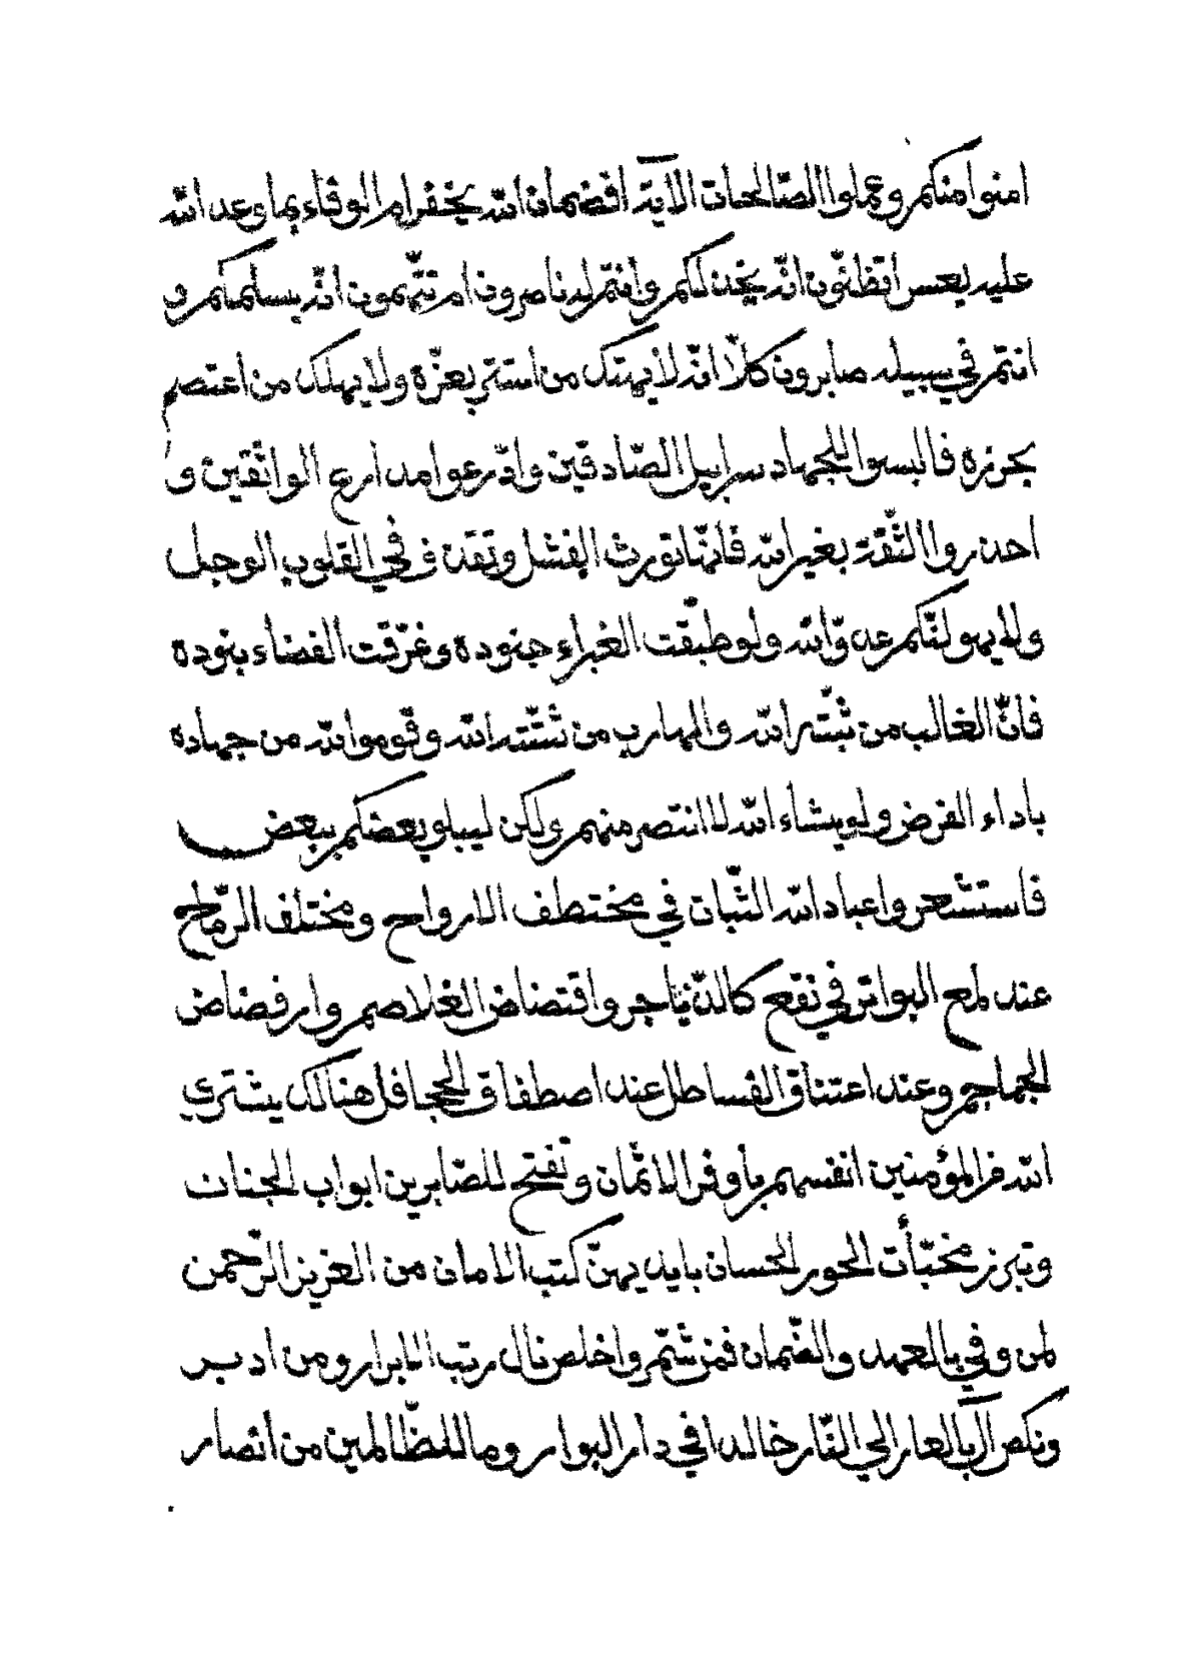 امنوا منكم وعملوا الصّالحات الآية افضمان الله يخفر ام الوفاء بما وعد الله
عليه يعسر اتظنّون انّه يخذلكم وانتم له ناصرون ام تتّهمون انّه يسلمكم و
انتم في سبيله صابرون كلّا انّه لا يهتك من استتر بعزّه ولا يهلك من اعتصم
بحرزه فالبسوا للجهاد سرابيل الصّادقين وادّرعوا مدارع الواثقين و
احذروا الثّقة بغير الله فانّها تورث الفشل وتقذف في القلوب الوجل
ولا يهولنّكم عدوّ الله ولو طبّقت الغبراء جنوده وغرّقت الفضاء بنوده
فانّ الغالب من ثبّته الله والهارب من شتّته الله وقوموا لله من جهاده
باداء الفرض ولو يشاء الله لانتصر منهم ولكن ليبلو بعضكم ببعض
فاستشعروا عباد الله الثّبات في مختطف الارواح ومختلف الرّماح
عند لمع البواتر في نقع كالدّياجر واقتضاض الغلاصم وارفضاض
الجماجم وعند اعتناق القساطل عند اصطفاق الحجافل هنالك يشتري
الله من المؤمنين انفسهم بأوفر الاثمان وتفتح للصّابرين ابواب الجنان
وتبرز مخبّأت الحور الحسان بايديهنّ كتب الامان من العزيز الرّحمن
لمن وفي بالعهد والضّمان فمن شمّر واخلص نال رتب الابرار ومن ادبر
ونكص آب بالعار الي النّار خالدا في دار البوار وما للظّالمين من انصار